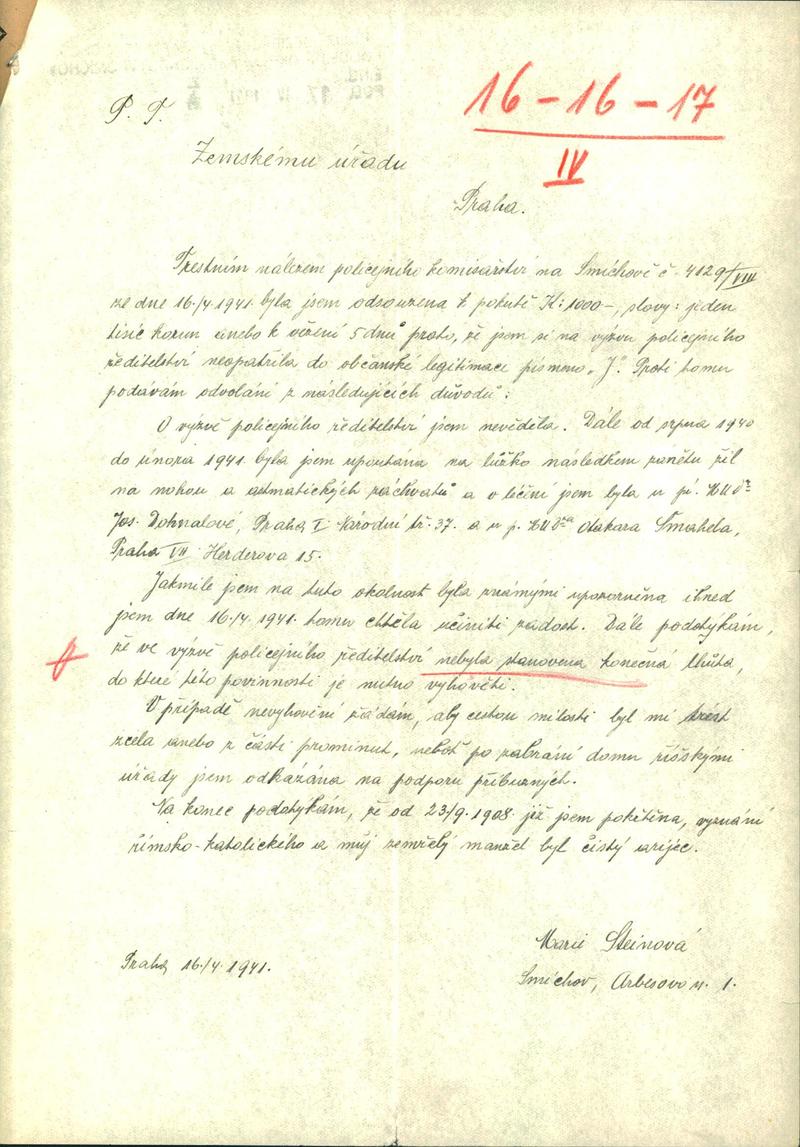 16 - 16 - 17
IV
P. T.
Zemskému úřadu
Praha.
Trestním nálezem policejního komisařství na Smíchově č. 4129/VIII
ze dne 16./4. 1941. byla jsem odsouzena k pokutě K: 1000 -, slovy: jeden
tisíc korun anebo k vězení 5 dnů proto, že jsem si na výzvu policejního
ředitelství neopatřila do občanské legitimace písmeno „J". Proti tomu
podávám odvolání z následujících důvodů:
O výzvě policejního ředitelství jsem nevěděla. Dále od srpna 1940
do února 1941. byla jsem upoutána na lůžko následkem zánětu žil
na nohou a astmatických záchvatů a v léčení jsem byla u pí. MUDr
Jos. Dohnalové, Praha I. Národní tř. 37. a u p. MUDra Otakara Šmahela,
Praha VII Herderova 15.
Jakmile jsem na tuto okolnost byla známými upozorněna ihned
jsem dne 16./4. 1941. tomu chtěla učiniti zadost. Dále podotýkám,
že ve výzvě policejního ředitelství nebyla stanovena konečná lhůta,
do které této povinnosti je nutno vyhověti.
V případě nevyhovění žádám, aby cestou milosti byl mi trest
zcela anebo z části prominut, neboť po zabrání domu říšskými
úřady jsem odkázána na podporu příbuzných.
Na konec podotýkám, že od 23/9. 1908. již jsem pokřtěna, vyznání
římsko-katolického a můj zemřelý manžel byl čistý arijec.
Marie Steinová
Praha 16./4. 1941.
Smíchov, Arbesovo n. 1.